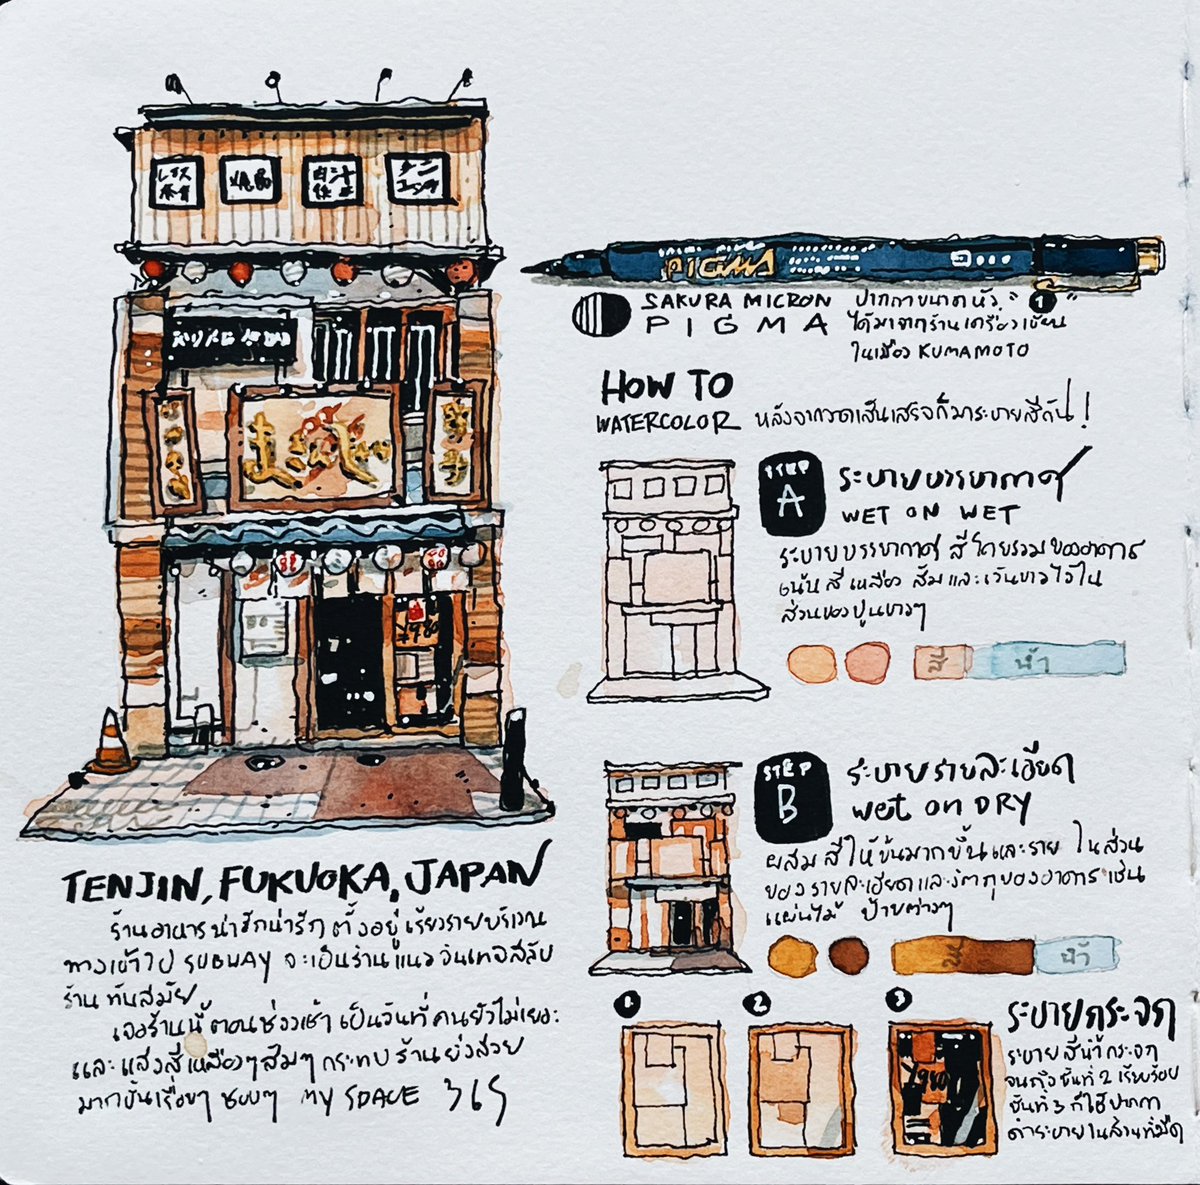 PIGMA
SAKURA MICRON
PIGMA
ปากกาขนาดหัว "1"
ได้มาจากร้านเครื่องเขียน
ในเมือง KUMAMOTO
HOW TO
WATERCOLOR หลังจากวาดเส้นเสร็จก็มาระบายสีกัน!
STEP
A
ระบายบรรยากาศ
WET ON WET
ระบายบรรยากาศ สีโดยรวมของอาคาร
เน้นสีเหลือง ส้ม และเว้นขาวไว้ใน
ส่วนของปูนขาวๆ
น้ำ
STEP
B
ระบายรายละเอียด
WET ON DRY
ผสมสีให้ข้นมากขึ้นและราย ในส่วน
ของรายละเอียดและวัตถุของอาคาร เช่น
แผ่นไม้ ป้ายต่างๆ
น้ำ
1
2
3
ระบายกระจก
ระบายสีน้ำกระจก
จนถึงชั้นที่ 2 เรียบร้อย
ชั้นที่ 3 ก็ใช้ปากกา
ดำระบายในส่วนที่มืด
¥980
¥980
TENJIN, FUKUOKA, JAPAN
ร้านอาหารน่ารักน่ารัก ตั้งอยู่เรียงรายบริเวณ
ทางเข้าไป SUBWAY จะเป็นร้านแนววินเทจสลับ
ร้านทันสมัย
เจอร้านนี้ตอนช่วงเช้า เป็นวันที่คนยังไม่เยอะ
และแสงสีเหลืองๆส้มๆ กระทบร้านยิ่งสวย
มากขึ้นเรื่อยๆ ชอบๆ MY SPACE 365